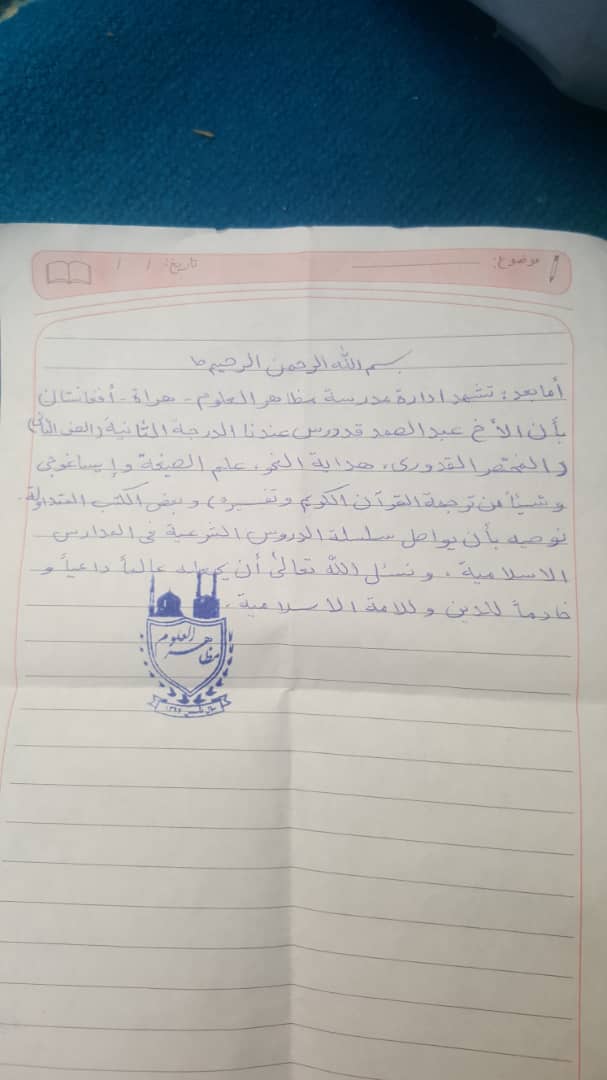 موضوع:
تاریخ: / /
بسم الله الرحمن الرحيم
أما بعد: تشهد ادارة مدرسة مظاهر العلوم - هراة - أفغانستان
بأن الأخ عبد الصمد قد ورس عندنا الدرجة الثانية (الصف الثاني)
و المختصر القدوري، هداية النحو، علم الصيغة و إيساغوجي
و شيئاً من ترجمة القرآن الكريم و تفسيره) و بعض الكتب المتداولة.
نوصيه بأن يواصل سلسلة الدروس الشرعية في المدارس
الاسلامية، و نسئل الله تعالىٰ أن يجعله عالماً داعياً و
خادماً للدين و للامة الاسلامية.
مظاهر العلوم